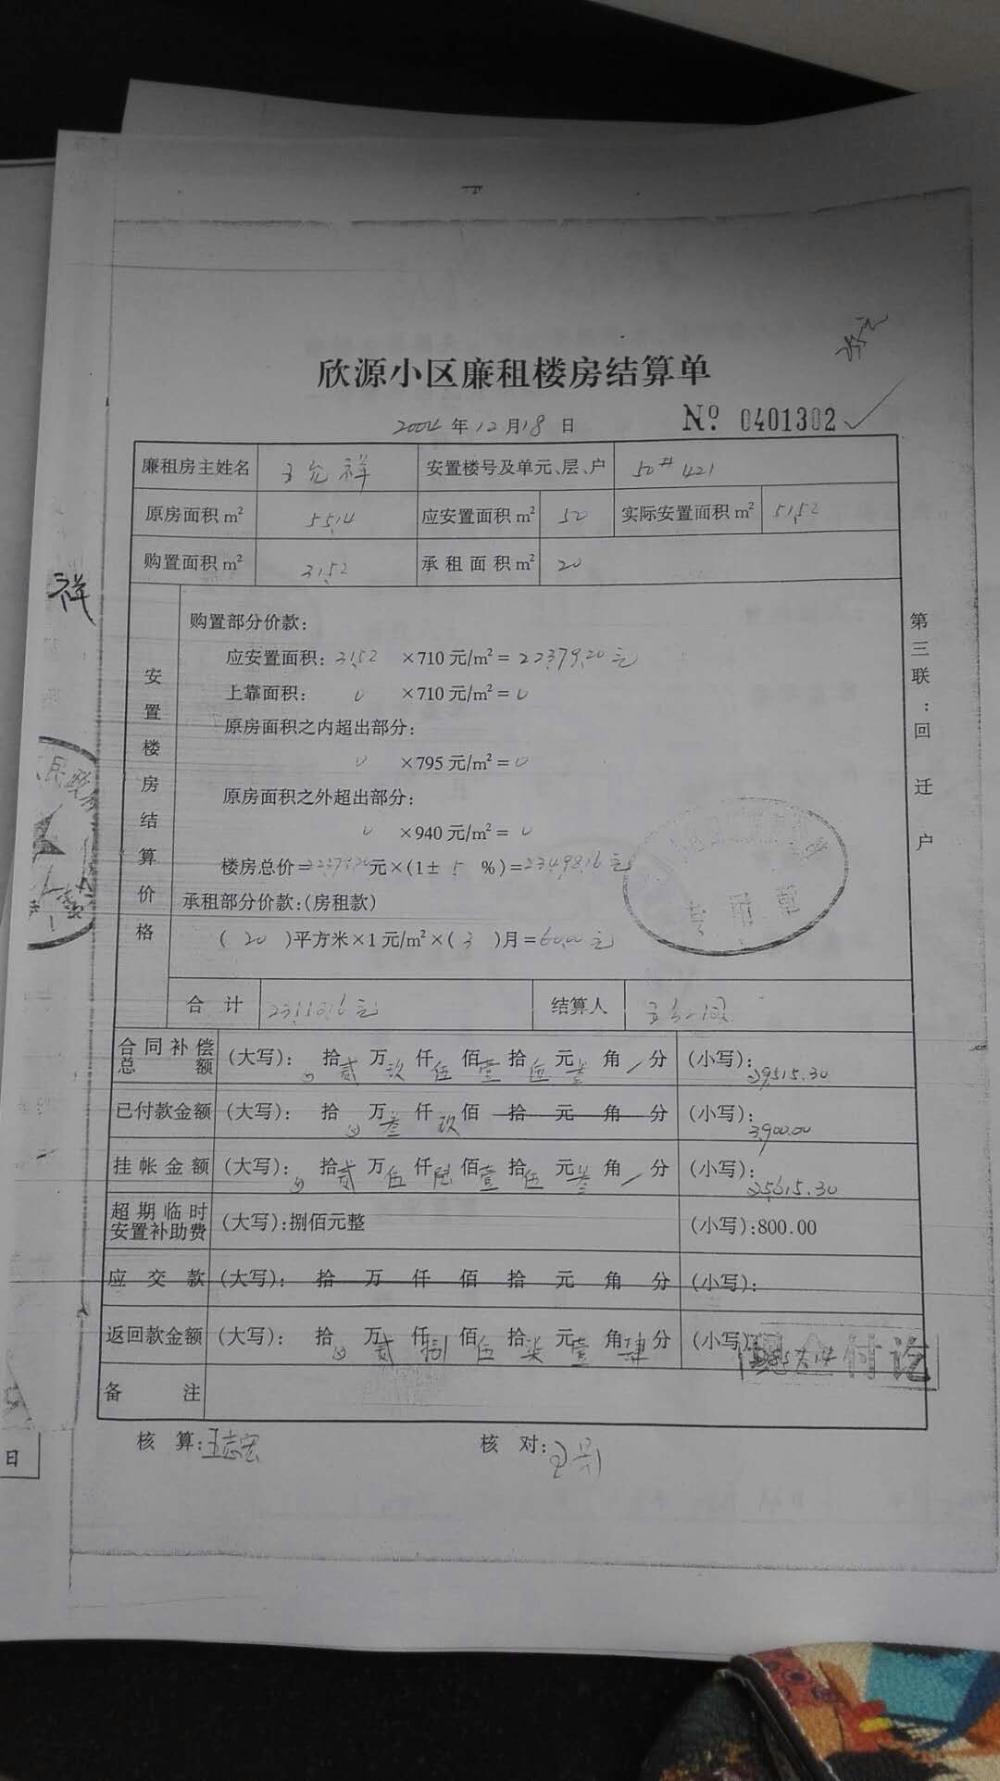 欣源小区廉租楼房结算单
2004年12月18日 No 0401302
廉租房主姓名 王允祥 安置楼号及单元、层、户 50# 421
原房面积m² 55.14 应安置面积m² 50 实际安置面积m² 51.52
购置面积m² 31.52 承租面积m² 20
祥
第三联:回迁户
安置楼房结算价格
购置部分价款:
应安置面积: 31.52 ×710元/m²=22379.20元
上靠面积: 0 ×710元/m²=0
原房面积之内超出部分:
0 ×795元/m²=0
原房面积之外超出部分:
0 ×940元/m²=0
楼房总价=22379.20元×(1±5%)=23498.16元
承租部分价款:(房租款)
(20)平方米×1元/m²×(3)月=60.00元
专用章
合计 元 结算人
合同补偿总额 (大写): 拾贰万玖仟伍佰壹拾伍元叁角/分 (小写): 29515.30
已付款金额 (大写): 拾万叁仟玖佰拾元角分 (小写): 3900.00
挂帐金额 (大写): 拾贰万伍仟陆佰壹拾伍元叁角/分 (小写): 25615.30
超期临时安置补助费 (大写):捌佰元整 (小写):800.00
应交款 (大写): 拾万仟佰拾元角分 (小写):
返回款金额 (大写): 拾万贰仟捌佰伍拾柒元壹角肆分 (小写)
现金付讫
备注
核算:王志宏 核对:
日